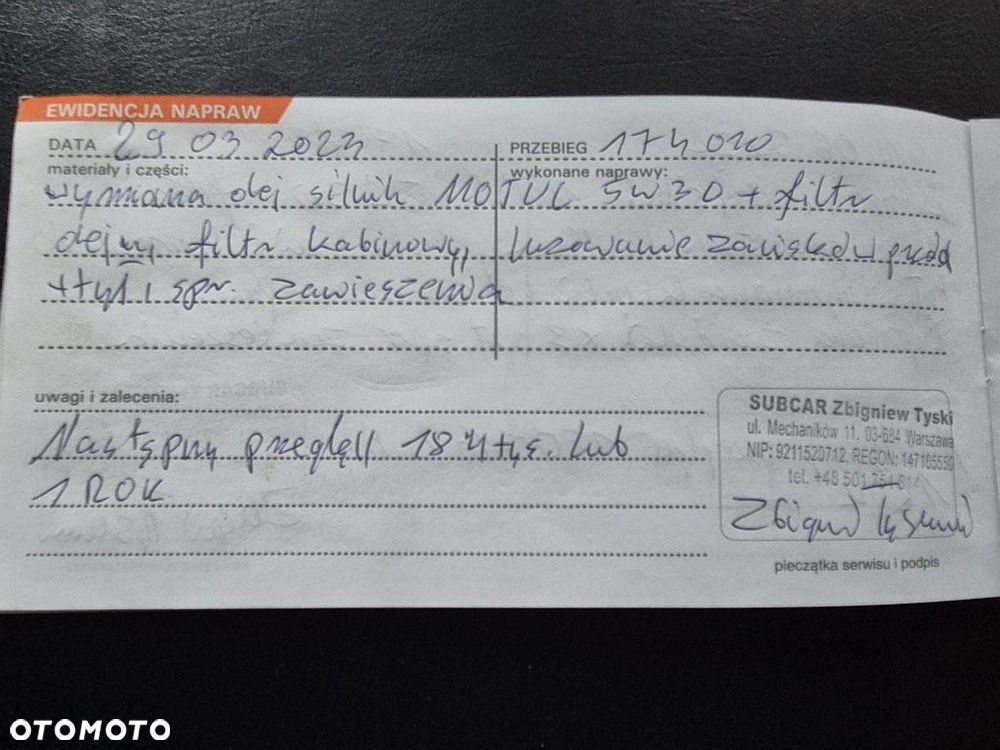 EWIDENCJA NAPRAW
DATA 29 03 2023 PRZEBIEG 174 010
materiały i części: wykonane naprawy:
wymiana olej silnik MOTUL 5W30 + filtr
olejny, filtr kabinowy, luzowanie zacisków przód
+ tył i spr. zawieszenia
uwagi i zalecenia:
Następny przegląd 184 tyś. lub
1 ROK
SUBCAR Zbigniew Tyski
ul. Mechaników 11, 03-684 Warszawa
NIP: 9211520712, REGON: 147185550
tel. +48 501
Zbigniew
pieczątka serwisu i podpis
OTOMOTO